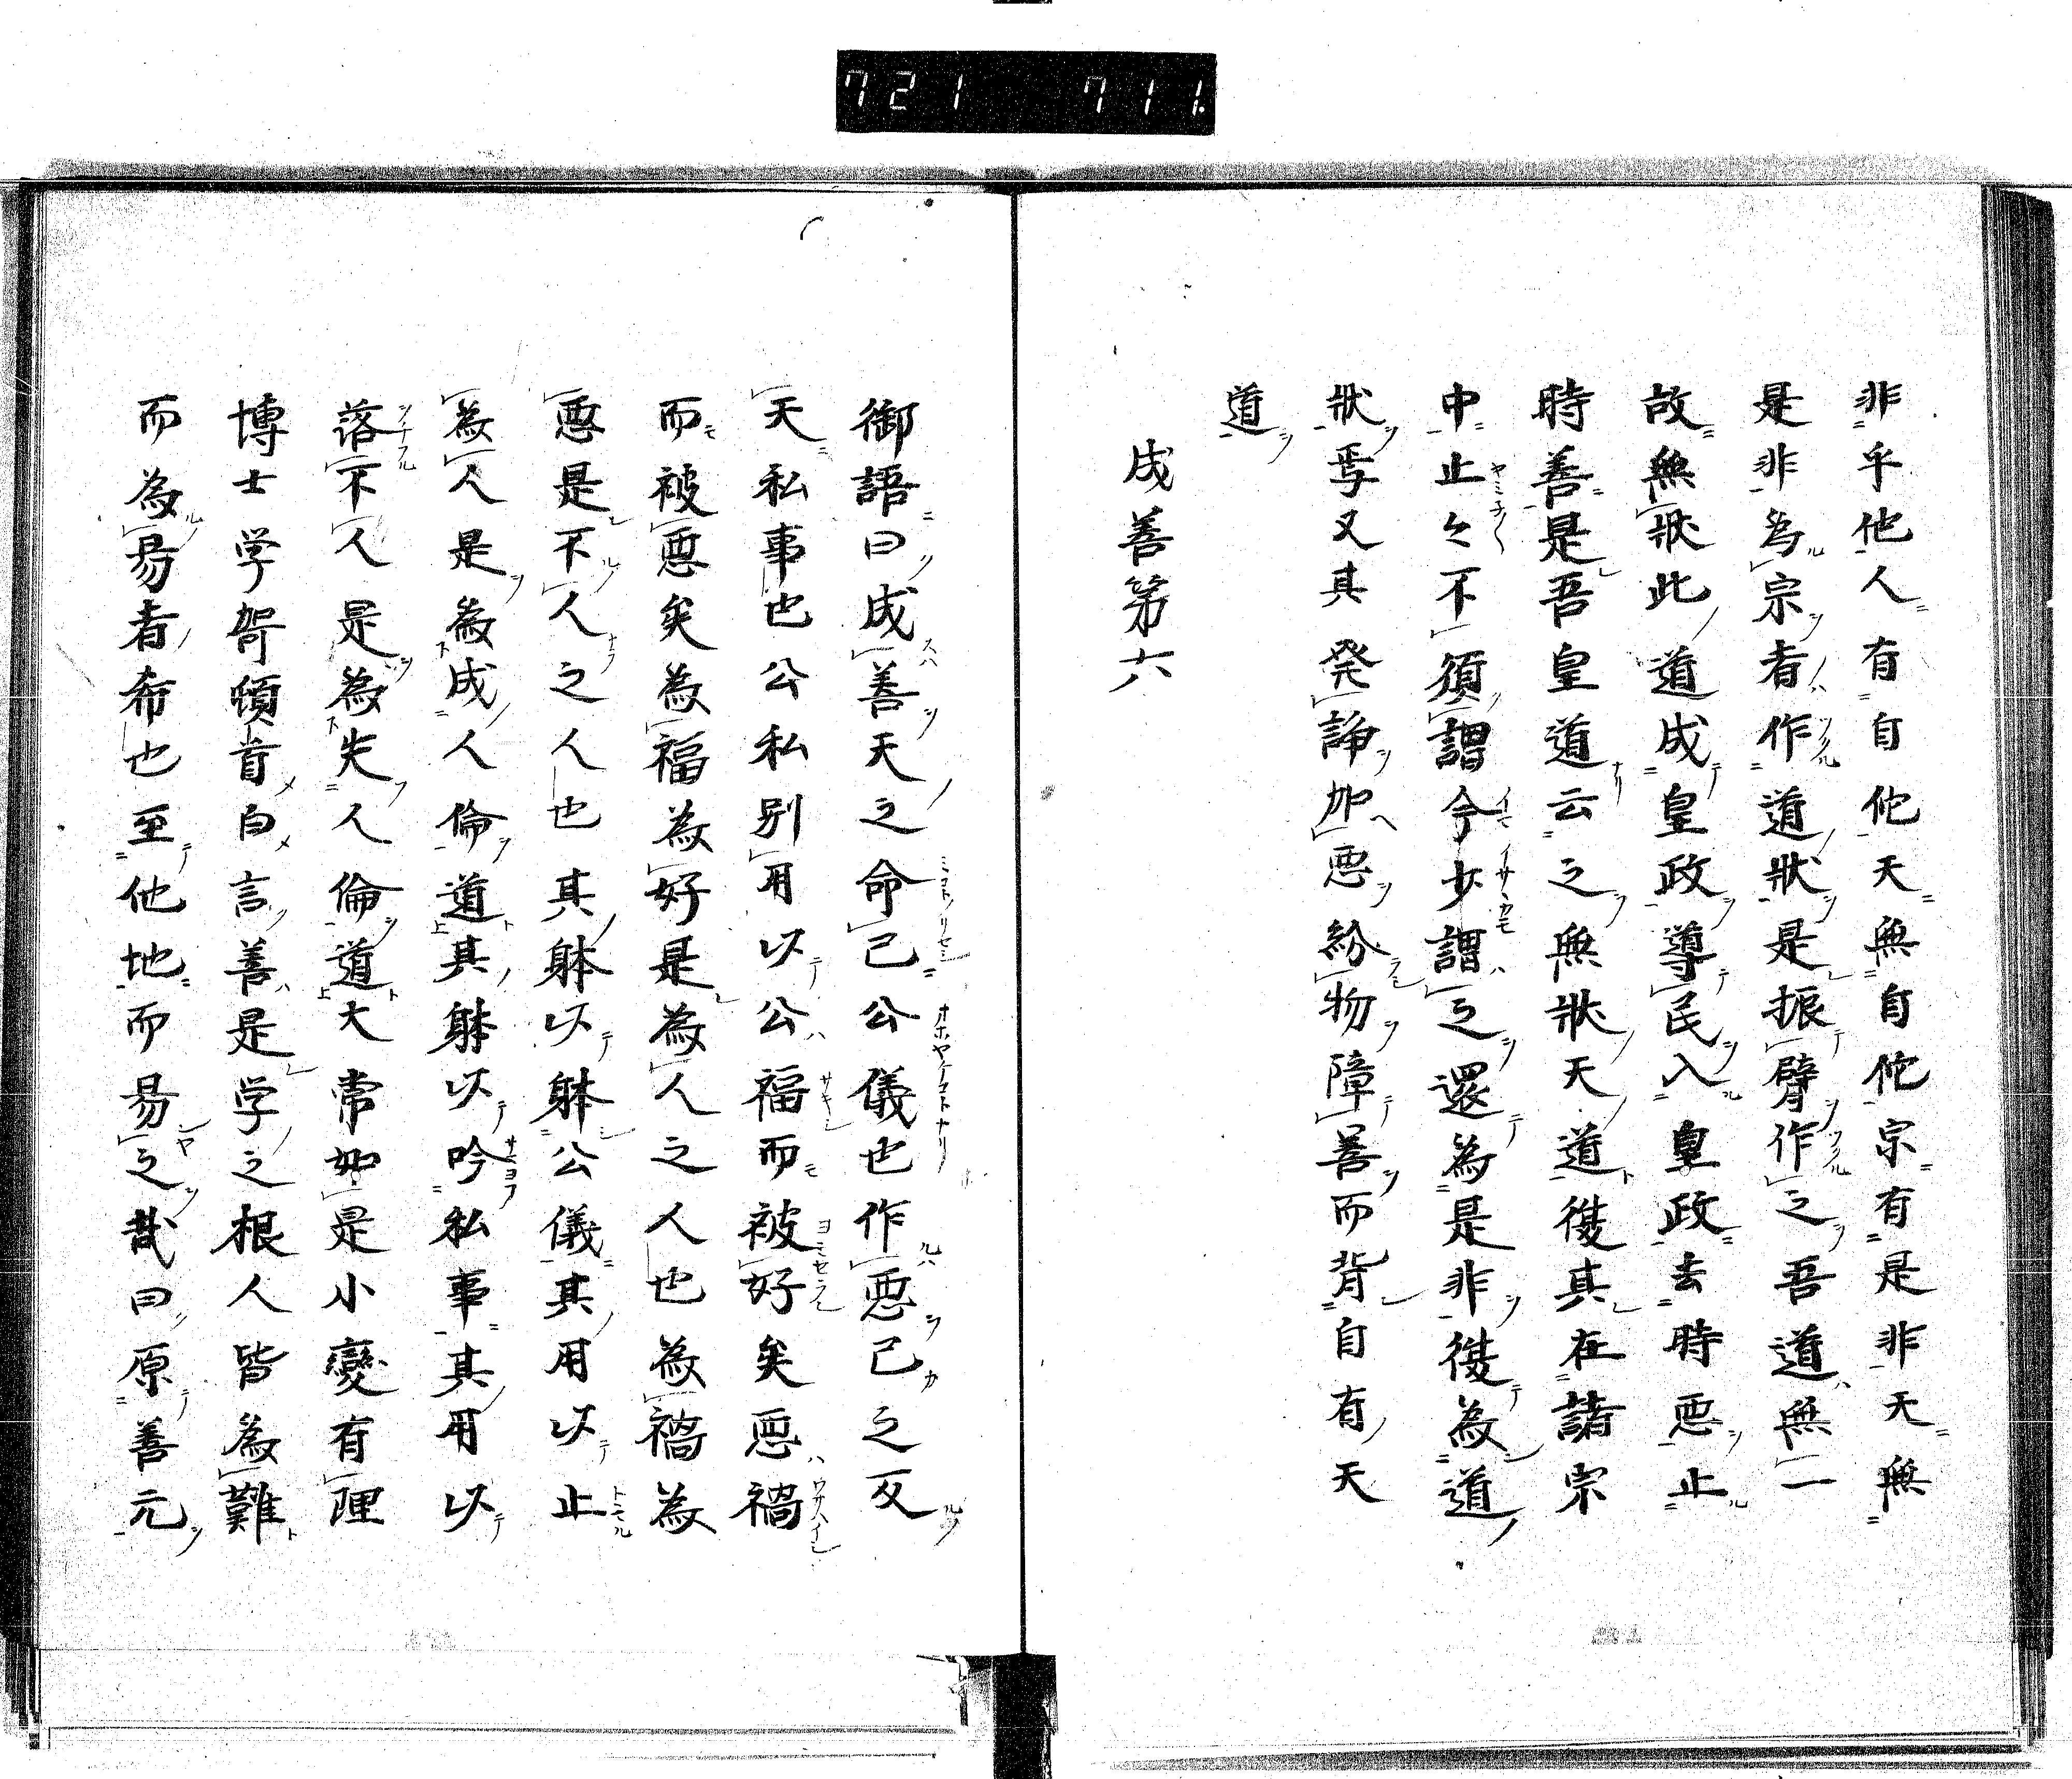 721 711.
非乎他人有自他天無自他宗有是非天無
是非為宗者作道狀是振臂作之吾道無一
故無狀此道成皇政導民入皇政去時惡止
時善是吾皇道云之無狀天道復其在諸宗
中止々不須謂今少謂之還為是非復為道
狀焉又其発諍加惡紛物障善而背自有天
道
成善第六
御語曰成善天之命己公儀也作惡己之
天私事也公私別用以公福而被好矣惡禍
而被惡矣為福為好是為人之人也為禍為
惡是不人之人也其躰以躰公儀其用以止
為人是為成人倫道其躰以吟私事其用以
落不人是為失人倫道大常如是小變有理
博士学哿頓首白言善是学之根人皆為難
而為易者希也至他地而易之哉曰原善元